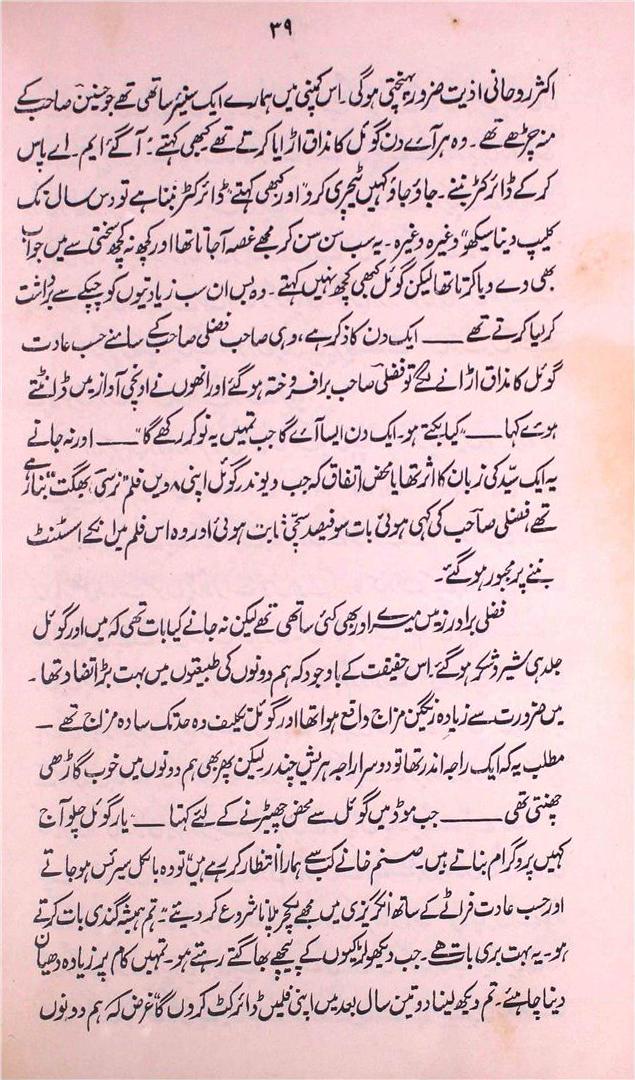 ۳۹
اکثر روحانی اذیت ضرور پہنچتی ہوگی۔ اس کمپنی میں ہمارے ایک سینئر ساتھی تھے جو حسنین صاحب کے
منہ چڑھے تھے۔ وہ ہر آے دن گوئل کا مذاق اڑایا کرتے تھے کبھی کہتے: آگئے ایم۔ اے پاس
کر کے ڈائرکٹر بننے۔ جاؤ جاؤ کہیں ٹیچری کرو" اور کبھی کہتے "ڈائرکٹر بننا ہے تو دس سال تک
کلیپ دینا سیکھو" وغیرہ وغیرہ۔ یہ سب سن سن کر مجھے غصہ آجاتا تھا اور کچھ نہ کچھ سختی سے میں جواب
بھی دے دیا کرتا تھا لیکن گوئل کبھی کچھ نہیں کہتے۔ وہ بس ان سب زیادتیوں کو چپکے سے برداشت
کر لیا کرتے تھے ــــ ایک دن کا ذکر ہے، وہی صاحب فضلی صاحب کے سامنے حسب عادت
گوئل کا مذاق اڑانے لگے تو فضلی صاحب برافروختہ ہو گئے اور انھوں نے اونچی آواز میں ڈانٹتے
ہوے کہا ــــ "کیا بکتے ہو۔ ایک دن ایسا آے گا جب تمہیں یہ نوکر رکھے گا" ــــ اور نہ جانے
یہ ایک سیّد کی زبان کا اثر تھا یا محض اتفاق کہ جب دیوندر گوئل اپنی ۸ ویں فلم "نرسی بھگت" بنا رہے
تھے، فضلی صاحب کی کہی ہوئی بات سو فیصد سچی ثابت ہوئی اور وہ اس فلم میں انکے اسسٹنٹ
بننے پر مجبور ہو گئے۔
فضلی برادرز میں میرے اور بھی کئی ساتھی تھے لیکن نہ جانے کیا بات تھی کہ میں اور گوئل
جلد ہی شیر و شکر ہو گئے۔ اس حقیقت کے باوجود کہ ہم دونوں کی طبیعتوں میں بہت بڑا تضاد تھا۔
میں ضرورت سے زیادہ رنگین مزاج واقع ہوا تھا اور گوئل تکلیف دہ حد تک سادہ مزاج تھے ــ
مطلب یہ کہ ایک راجہ اندر تھا تو دوسرا راجہ ہریش چندر لیکن پھر بھی ہم دونوں میں خوب گاڑھی
چھنتی تھی ــــــ جب موڈ میں گوئل سے محض چھیڑنے کے لئے کہتا ــــ "یار گوئل چلو آج
کہیں پروگرام بناتے ہیں۔ صنم خانے کب سے ہمارا انتظار کر رہے ہیں" تو وہ بالکل سیرئس ہو جاتے
اور حسب عادت فراٹے کے ساتھ انگریزی میں مجھے لکچر پلانا شروع کر دیتے "تم ہمیشہ گندی بات کرتے
ہو۔ یہ بہت بری بات ہے۔ جب دیکھو لڑکیوں کے پیچھے بھاگتے رہتے ہو۔ تمہیں کام پر زیادہ دھیان
دینا چاہئے۔ تم دیکھ لینا دو تین سال بعد میں اپنی فلمیں ڈائرکٹ کروں گا" غرض کہ ہم دونوں